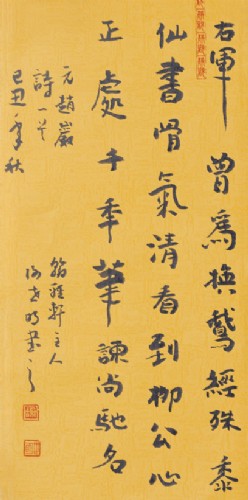 右軍曾為換鵞經殊黍
仙書骨氣清看到柳公心
正處千年筆諫尚馳名
元趙巖
詩一首
己丑年秋
雅軒主人
書之